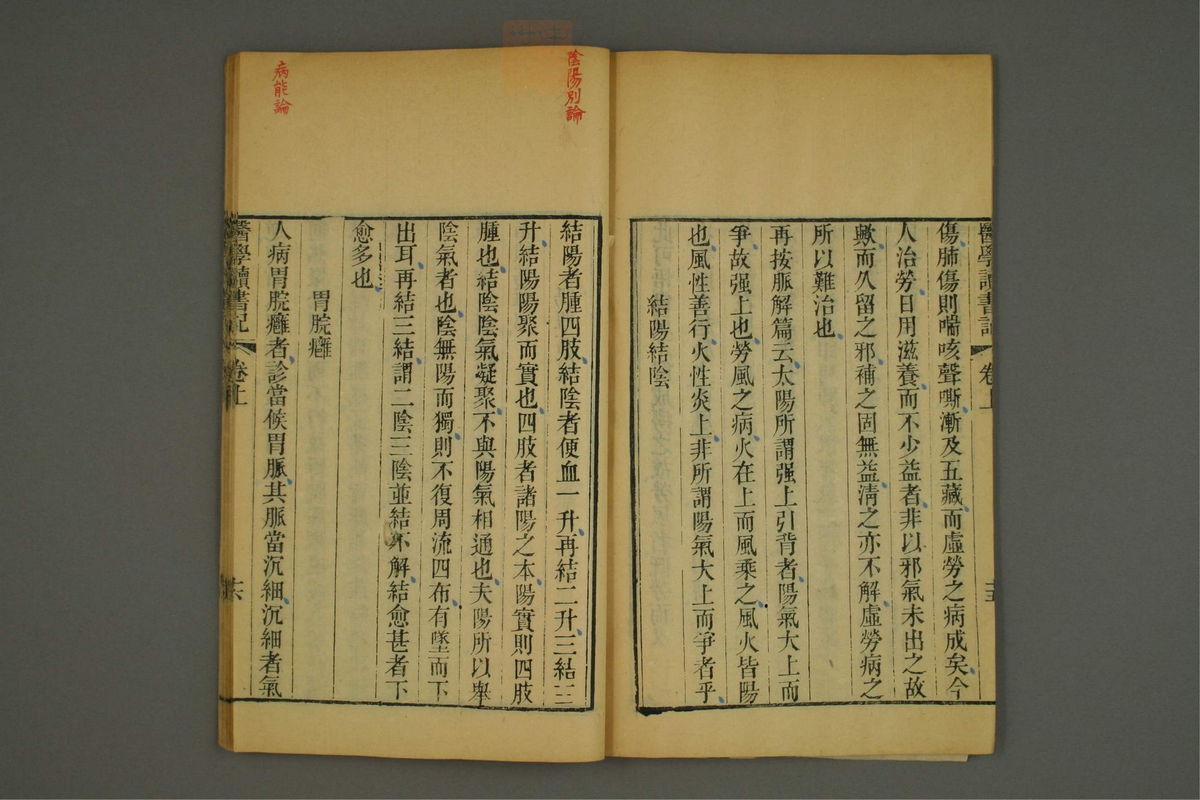 醫學讀書記
卷上
傷肺傷則喘咳聲嘶漸及五藏而虛勞之病成矣今
人治勞日用滋養而不少益者非以邪氣未出之故
歟而久留之邪補之固無益清之亦不解虛勞病之
所以難治也
再按脈解篇云太陽所謂强上引背者陽氣大上而
爭故强上也勞風之病火在上而風乘之風火皆陽
也風性善行火性炎上非所謂陽氣大上而爭者乎
結陽結陰
陰陽別論
結陽者腫四肢結陰者便血一升再結二升三結三
升結陽陽聚而實也四肢者諸陽之本陽實則四肢
腫也結陰陰氣凝聚不與陽氣相通也夫陽所以舉
陰氣者也陰無陽而獨則不復周流四布有墜而下
出耳再結三結謂二陰三陰並結不解結愈甚者下
愈多也
胃脘癰
病能論
人病胃脘癰者診當候胃脈其脈當沉細沉細者氣
醫學讀書記
卷上
十六